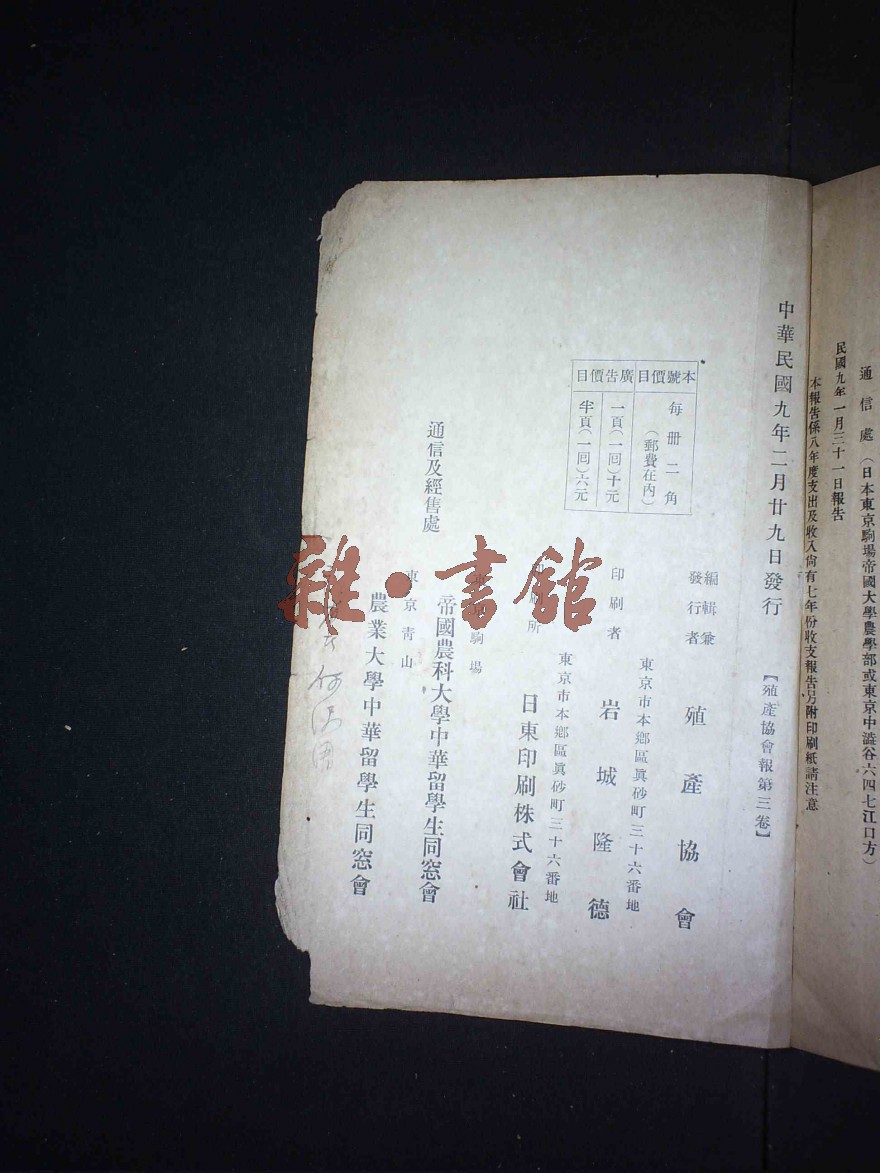 通信處（日本東京駒場帝國大學農學部或東京中澁谷六四七江口方）
民國九年一月三十一日報告
本報告係八年度支出及收入尙有七年份收支報告另附印刷紙請注意
中華民國九年二月廿九日發行
【殖產協會報第三卷】
本號價目
每冊二角
（郵費在內）
廣告價目
一頁（一回）十元
半頁（一回）六元
編輯兼
發行者
殖產協會
東京市本鄉區眞砂町三十六番地
印刷者
岩城隆德
東京市本鄉區眞砂町三十六番地
印刷所
日東印刷株式會社
通信及經售處
駒場
帝國農科大學中華留學生同窓會
東京靑山
農業大學中華留學生同窓會
何
雜·書館